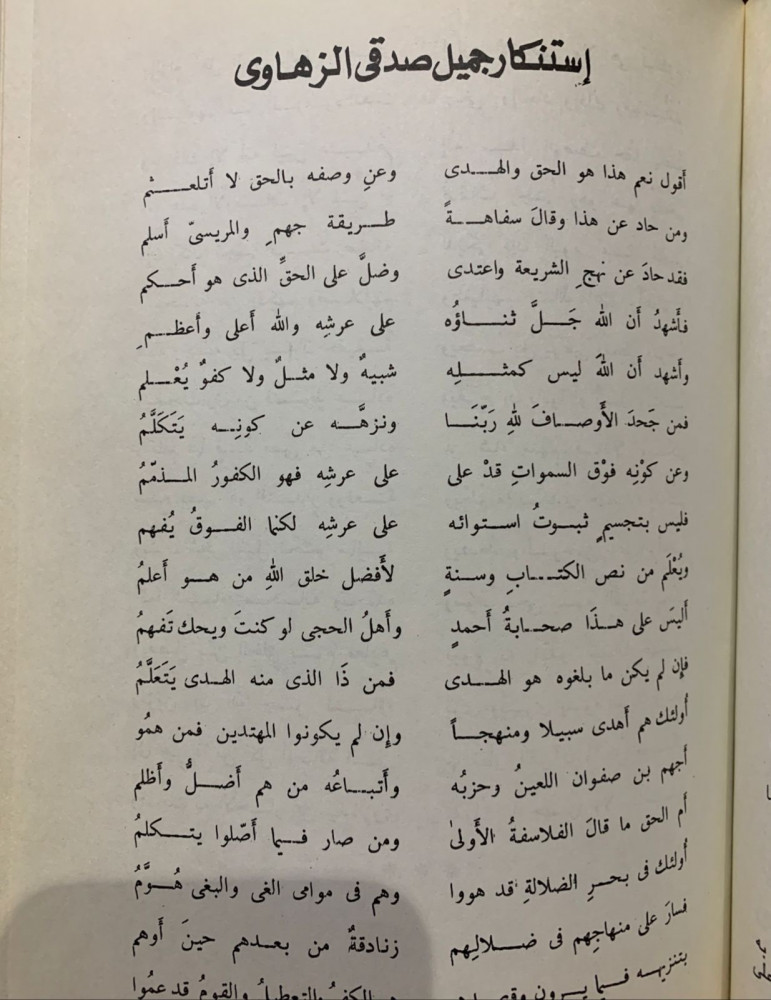 إستنكار جميل صدقى الزهاوى
أقول نعم هذا هو الحق والهـدى وعنِ وصفه بالحق لا أتلعـثم
ومن حاد عن هذا وقالَ سفاهـةً طـريقة جهمٍ والمريسىّ أسلم
فقد حادَ عن نهجِ الشريعة واعتدى وضلَّ على الحقِّ الذى هو أحـكم
فأشهدُ أن الله جَـلَّ ثنـاؤُه على عرشِه والله أعلى وأعظـمِ
وأشهد أن اللهَ ليس كمثـلِه شبيهٌ ولا مثـلٌ ولا كفوٌ يُعْـلم
فمن جَحدَ الأَوصـافَ للهِ رَبّنَـا ونزهَّـه عن كونِـه يَتَكَلَّمُ
وعن كوْنِه فوْق السمواتِ قدْ على على عرشِه فهو الكفورُ المـذمّمُ
فليس بتجسيمٍ ثبـوتُ استوائه على عرشِه لكنما الفـوقُ يُفهم
ويُعْلَم من نص الكتـابِ وسنةٍ لأَفضل خلق اللهِ من هـو أَعلمُ
أليسَ على هـذَا صحابةُ أحمدٍ وأهلُ الحجى لو كنتَ ويحك تَفهمُ
فإن لم يكن ما بلغوه هو الهـدى فمن ذَا الذى منه الهـدى يَتَعَلَّمُ
أولئك هم أهدى سبيلا ومنهجـاً وإن لم يكونوا المهتدين فمن همُو
أجهم بن صفوان اللعينُ وحزبُه وأتبـاعُه من هم أضـلُّ وأظلم
أم الحق ما قالَ الفلاسفةُ الأولىٰ ومن صار فـيما أصّلوا يتـكلمُ
أولئك فى بحـرِ الضلالةِ قد هووا وهم فى موامى الغى والبغى هُـوَّمُ
فسارَ على منهاجِهم فى ضـلالِهم زنادقةٌ من بعـدهم حينَ أوهم
بتنزيهـه فـيما يـرون الكفـرُ والتعطيلُ والقومُ قد عمُوا